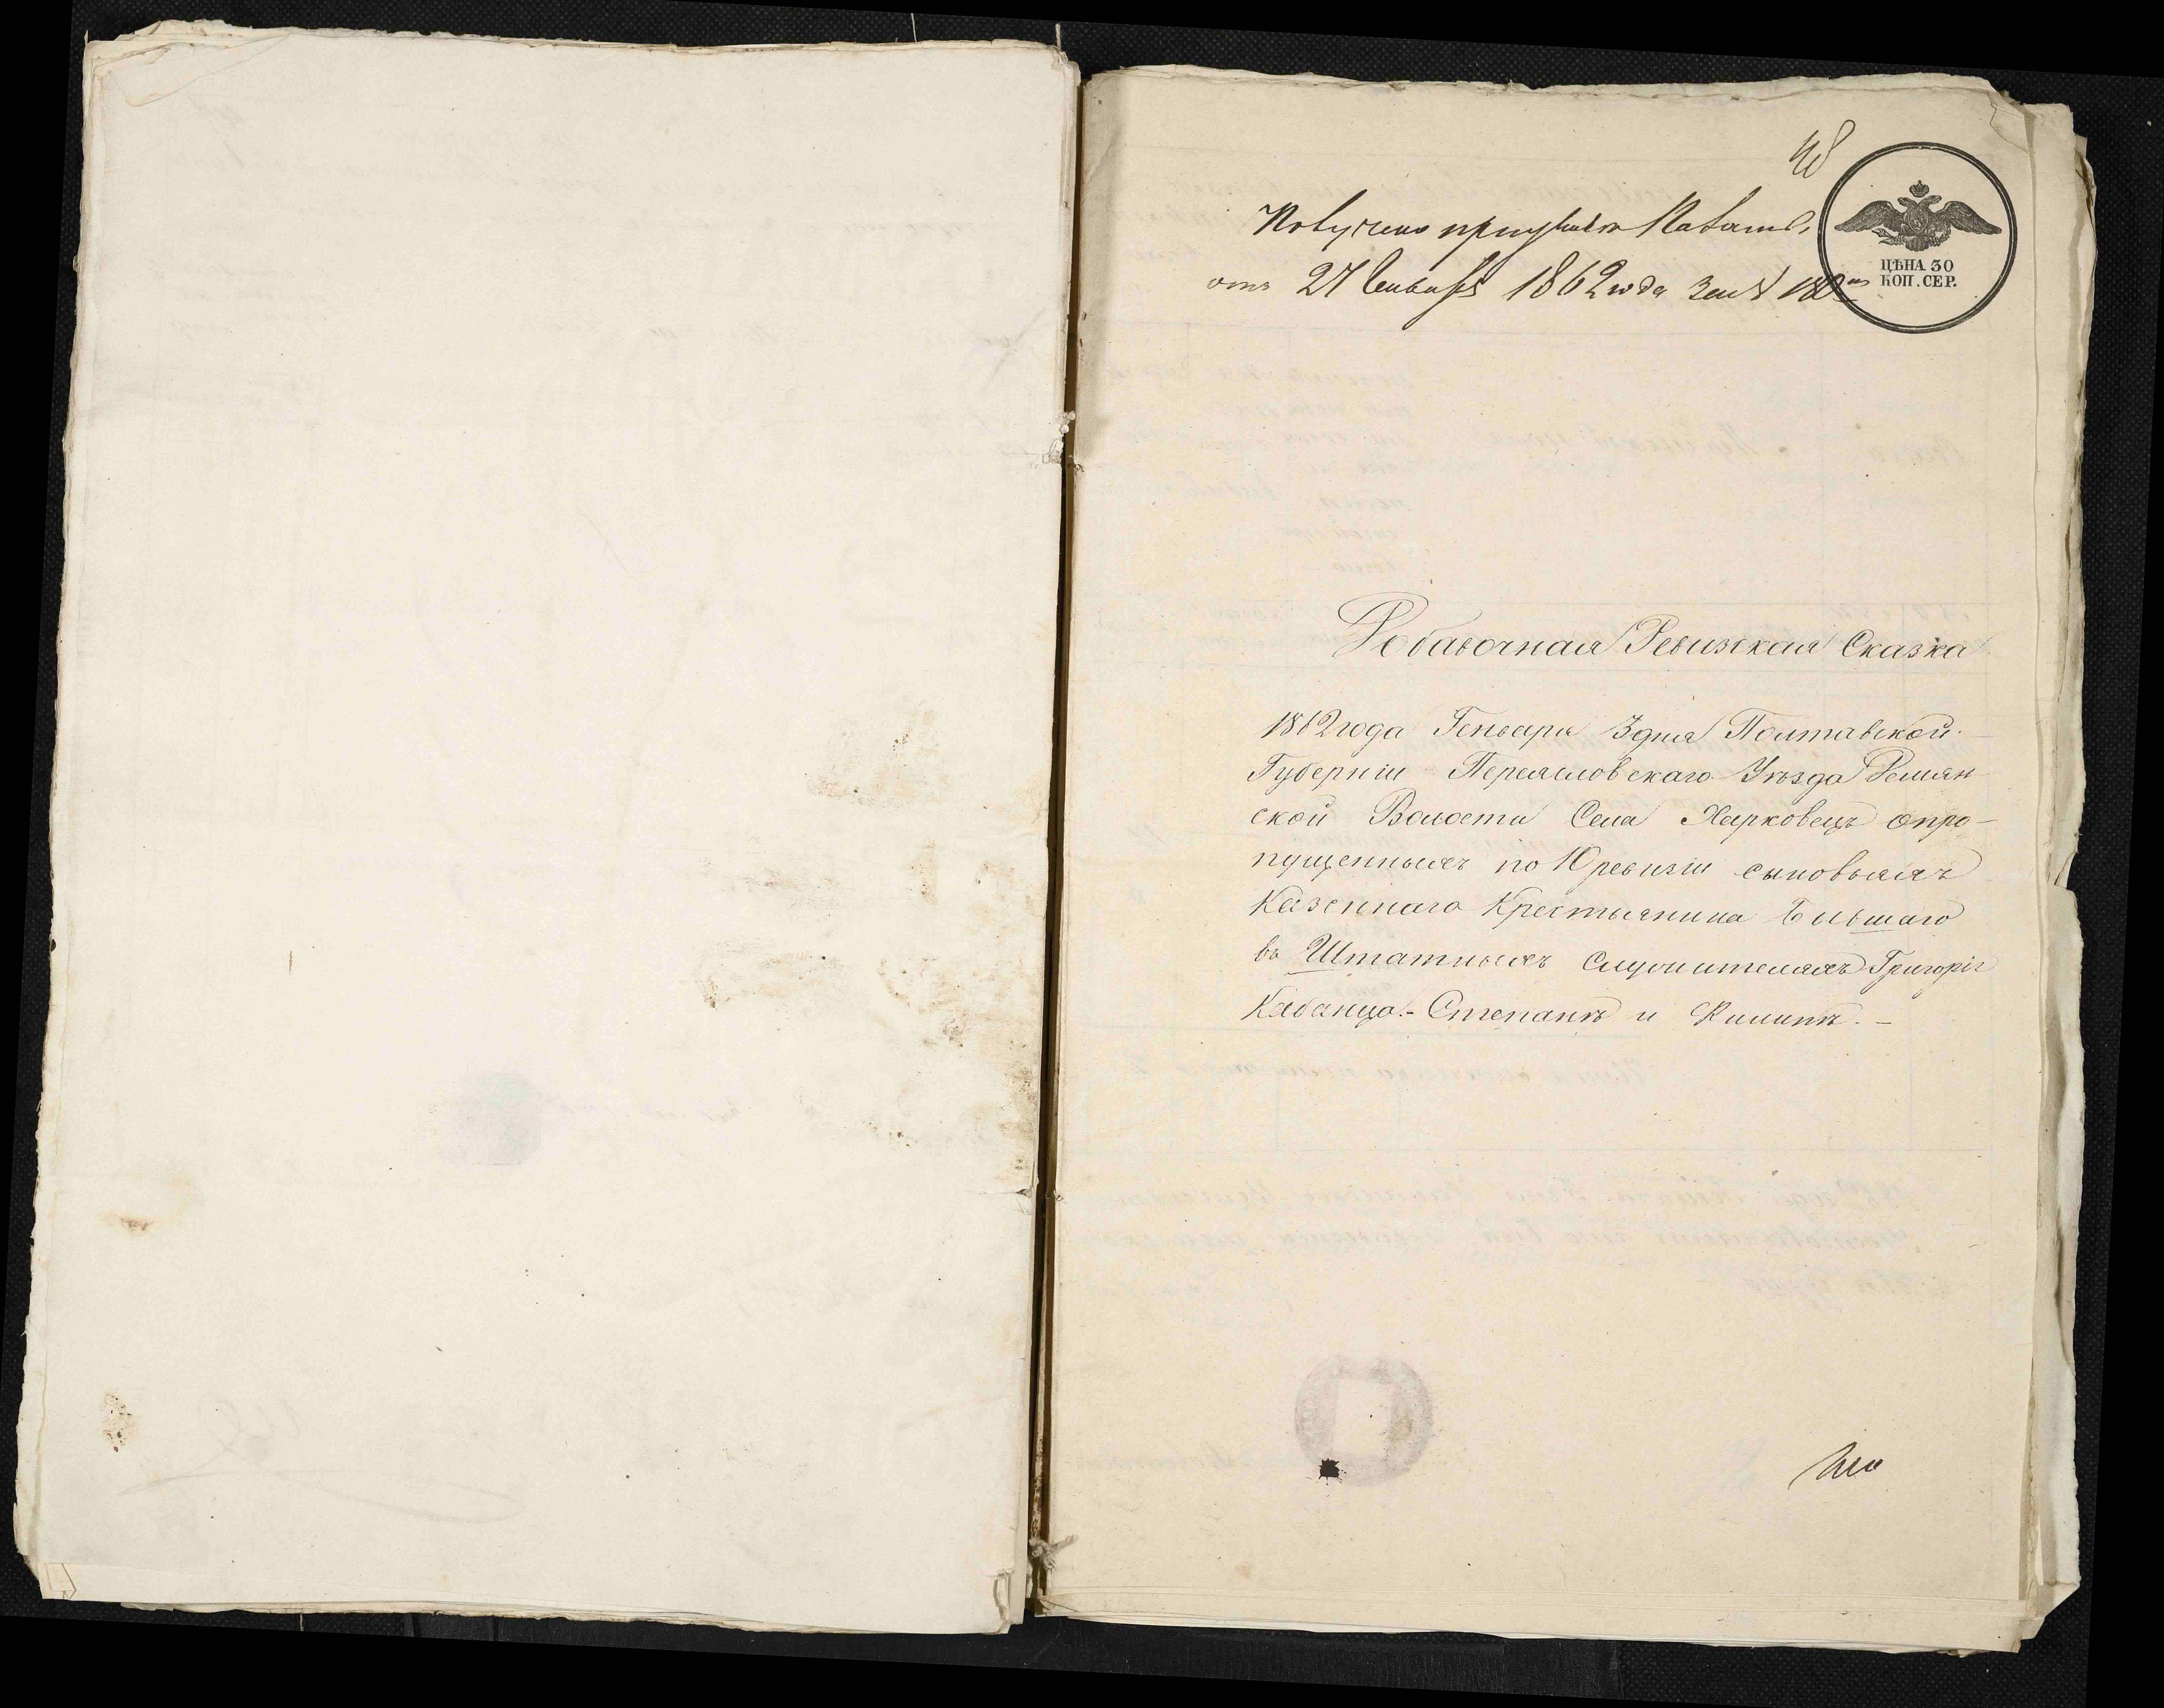 48
Получено при указѣ Палаты
отъ 27 Генваря 1862 года за №
ЦѢНА 30
КОП. СЕР.
Добавочная Ревизская Сказка
1862 года Генваря 3 дня Полтавской
Губерніи Переясловскаго Уѣзда Демян
ской Волости Села Харковецъ опро-
пущенныхъ по 10 ревизіи сыновьяхъ
Казеннаго Крестьянина бывшаго
въ Штатныхъ Служителяхъ Григорія
Кабанца - Степанѣ и Филипѣ. -